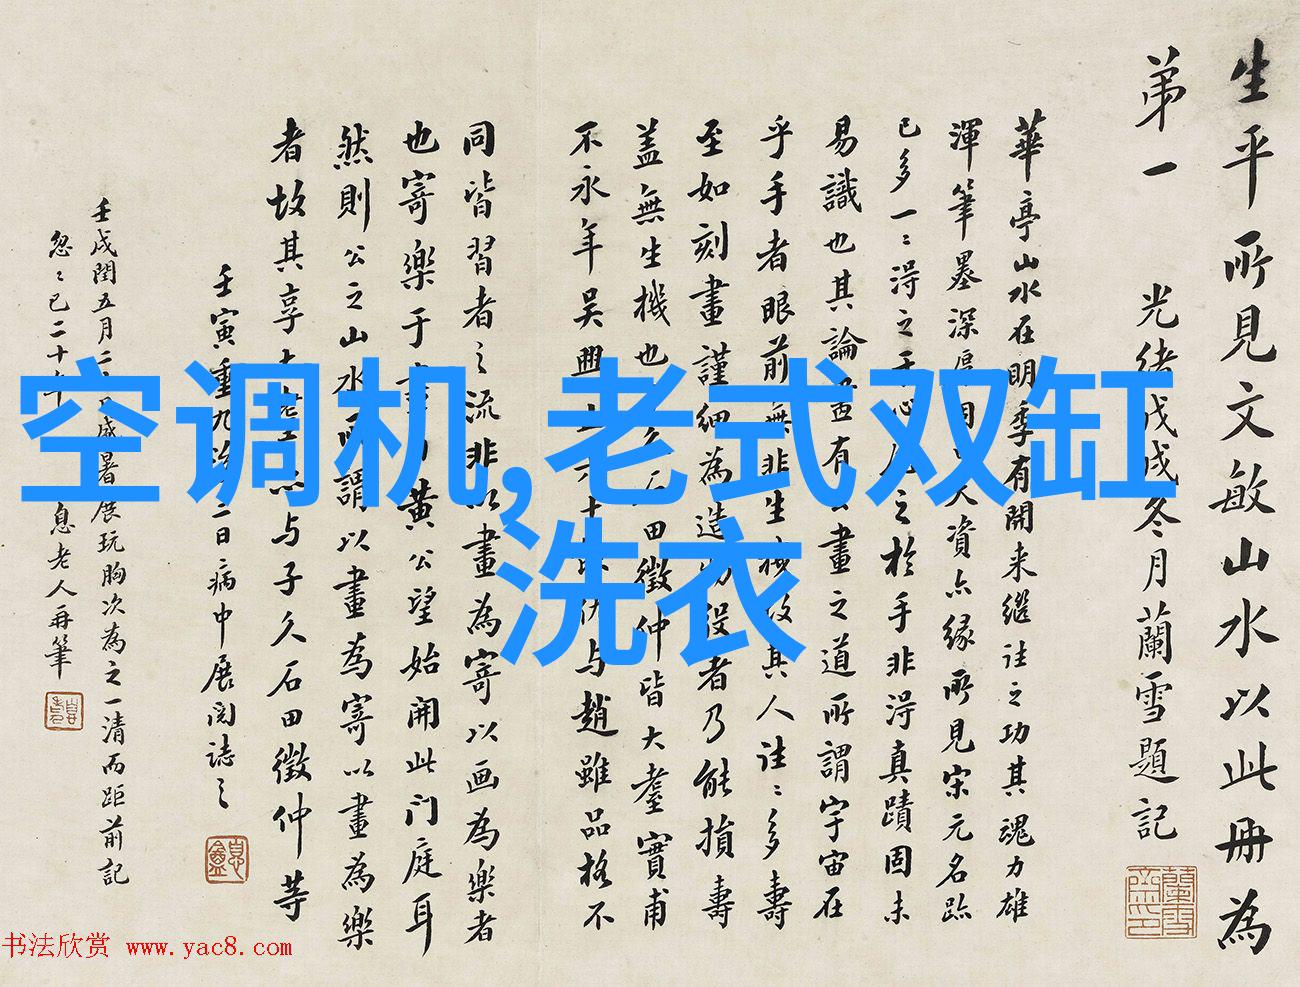 生平所見文敏山水以此冊為
弟一 光緒戊戌冬月蘭雪題記
華亭山水在明季有開来繼往之功其魂力雄
渾筆墨深資亦緣所見宋元名跡
已多一〻淂之于心之於手非淂真蹟固未
易識也其論畫有畫之道所謂宇宙在
乎手者眼前無非生機故其人往〻多壽
至如刻畫謹細為造物役者乃能損壽
盖無生機也田徵仲皆大耋實甫
不永年吳興六十仇与趙雖品格不
同皆習者之流非以畫為寄以画為樂者
也寄樂于畫自黃公望始開此门庭耳
然則公之山水可謂以畫為寄以畫為樂
者故其享大耋亦与子久石田徵仲等
壬寅重九後二日病中展阅誌之
壬戌閏五月二日盛暑展玩胸次為之一清而距前記
忽〻已二十年息老人再筆
空调机,老式双缸
洗衣
书法欣赏 www.yac8.com